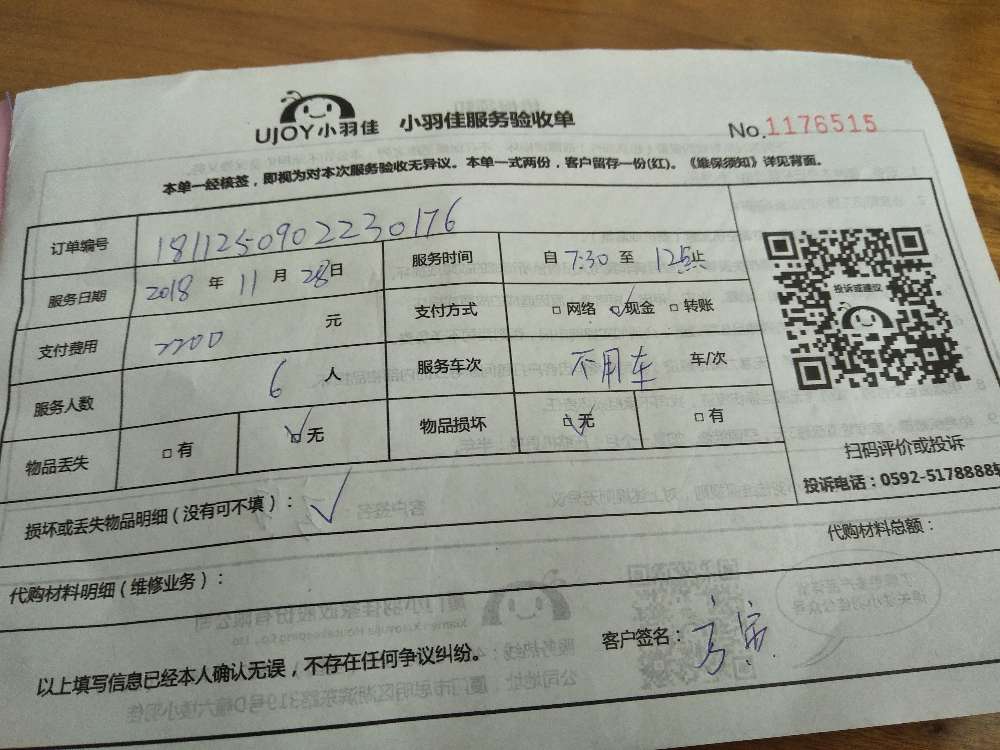 UJOY小羽佳 小羽佳服务验收单
No.1176515
本单一经核签，即视为对本次服务验收无异议。本单一式两份，客户留存一份(红)。《维保须知》详见背面。
订单编号 1811250902230176
服务日期 2018 年 11 月 28日 服务时间 自 7:30 至 12点止
支付费用 2200 元 支付方式 □ 网络 ☑ 现金 □ 转账
服务人数 6 人 服务车次 不用车 车/次
物品丢失 □ 有 ☑ 无 物品损坏 ☑ 无 □ 有
投诉或建议
扫码评价或投诉
投诉电话：0592-5178888转
损坏或丢失物品明细（没有可不填）：√
代购材料明细（维修业务）： 代购材料总额：
以上填写信息已经本人确认无误，不存在任何争议纠纷。 客户签名：